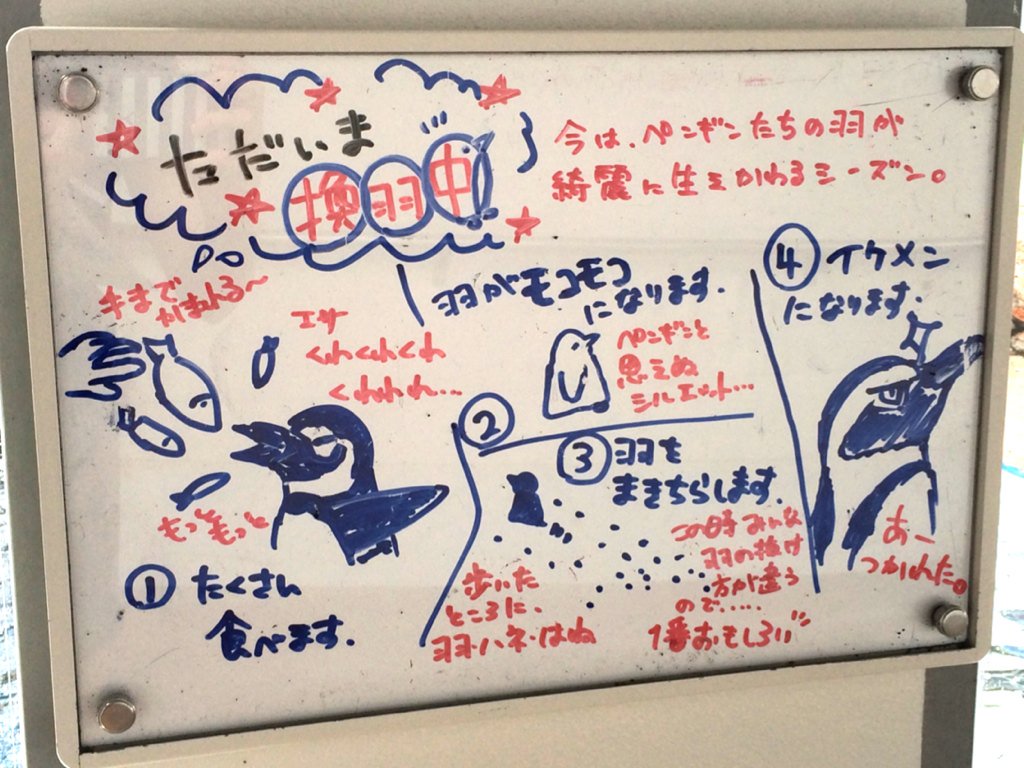 ただいま
換羽中
今は、ペンギンたちの羽が
綺麗に生えかわるシーズン。
手まで
かまれる〜
エサ
くれくれくれ
くれれれ…
もっともっと
① たくさん
食べます.
②
羽がモコモコ
になります.
ペンギンと
思えぬ
シルエット…
③ 羽を
まきちらします.
この時みんな
羽の抜け
方が違う
ので.....
1番おもしろい
歩いた
ところに、
羽・ハネ・はね
④ イケメン
になります.
あー
つかれた。